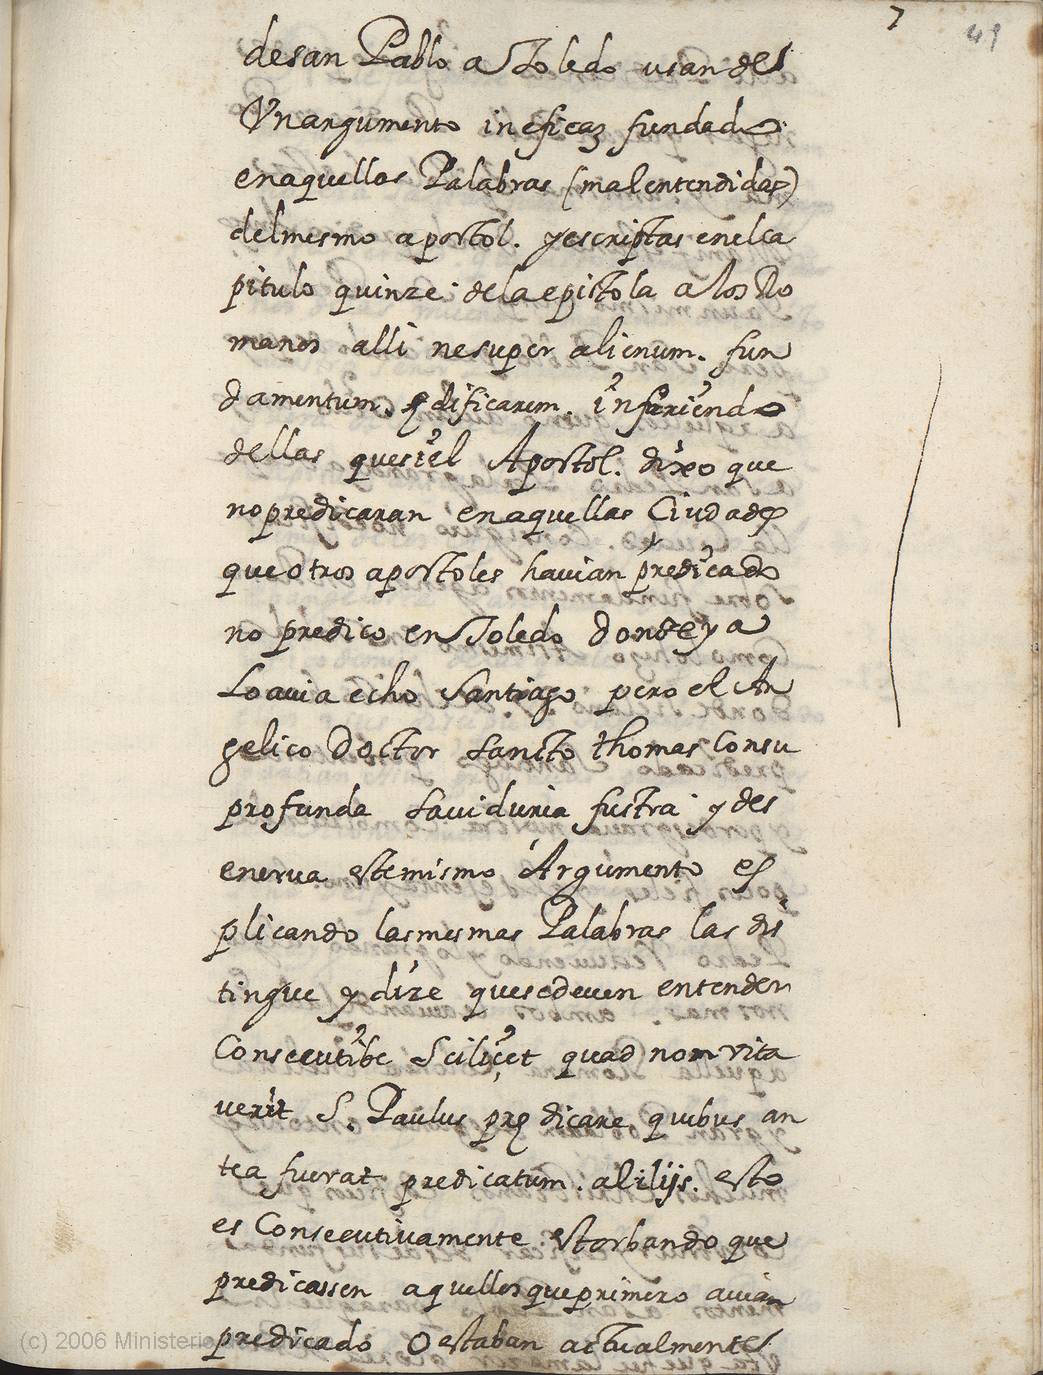 7 49
de san Pablo a Toledo usan de
Un argumento ineficaz fundado
en aquellas Palabras (mal entendidas)
del mesmo apostol. y escriptas en el ca
pitulo quinze de la epistola a los Ro
manos alli ne super alienum. fun
damentum. ędificarem. infiriendo
dellas que si el Apostol. dixo que
no predicaran en aquellas Ciudades
que otros apostoles havian predicado
no predico en Toledo donde ya
lo avia echo Santiago pero el An
gelico Doctor Sancto thomas Con su
profunda saviduria fustra y des
enerva este mismo Argumento es
plicando las mesmas Palabras las dis
tingue y dize que se deven entender
Consecutibe Scilicet quod non vita
verit S. Paulus prędicare quibus an
tea fuerat predicatum. ab ilijs. esto
es Consecutivamente estorbando que
predicassen aquellos que primero avian
predicado o estaban actualmente
(c) 2006 Ministerio